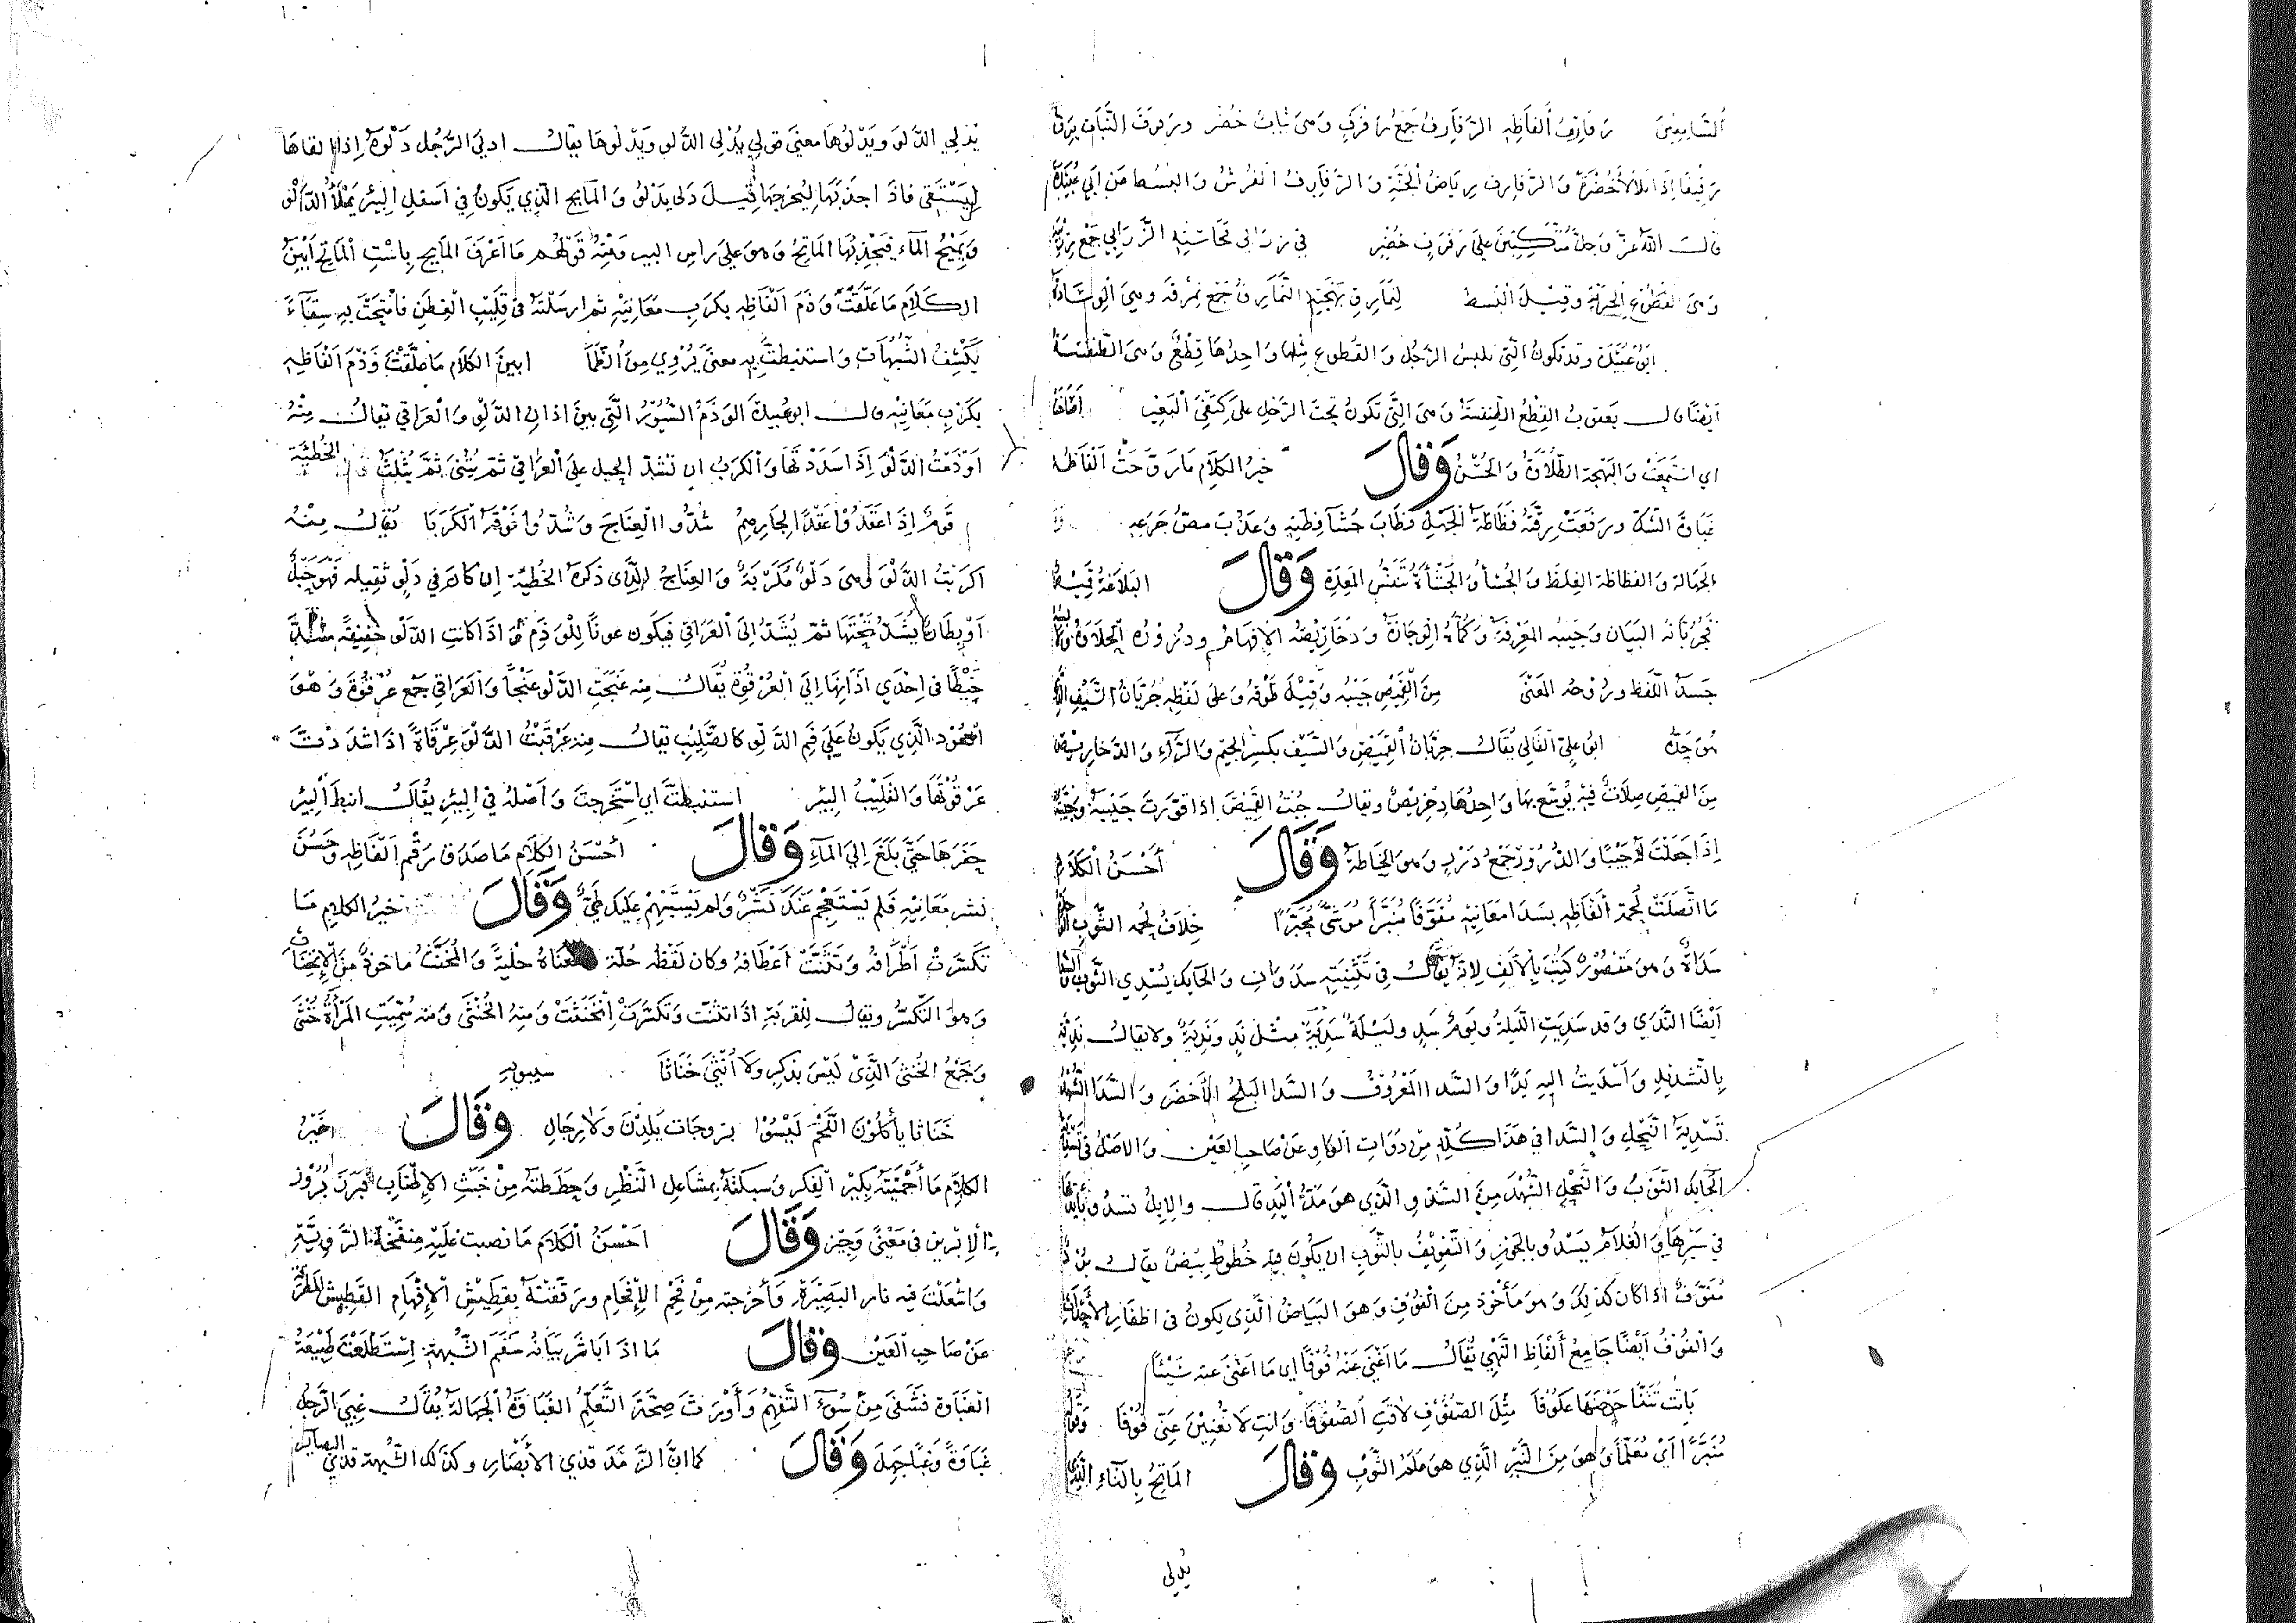 السَّامِعِينَ رَفَارِفُ أَلفاظِهِ الرَّفَارِفُ جَمْعُ رَفْرَفٍ وَهي ثيابٌ خُضْر ورَفرَفَ النَّبَات يَرِفّ
رَفِيفًا إذَا تلألأ خُضْرَةً وَالرَّفارِفُ رِيَاضُ الْجَنَّةِ وَالرَّفارِفُ الفُرُشُ وَالبُسُط عَن ابي عُبَيْدَةَ
قَالَ اللهُ عَزَّ وَجَلَّ مُتَّكِئِينَ عَلَى رَفْرَفٍ خُضْرٍ في زرابي مَحَاسِنِهِ الزَّرَابِي جَمْعُ زِرْبِيَّة
وَهيَ القُطُوعُ الحِيريَّةُ وقِيلَ البُسط نَمَارِقِ بَهْجَتِهِ النَّمَارِقُ جَمْعُ نُمْرُقَةٍ وهيَ الْوِسَادَةُ
ابُو عُبَيْدَة وقد تكونُ الَّتي تلبس الرَّحْلَ وَالقُطُوع مِثلها وَاحِدُهَا قِطْعٌ وَهيَ الطُّنْفُسَةُ
اَيْضًا قَالَ يَعقوبُ القِطْعُ الطِّنفسَةُ وَهيَ الَّتي تكُونُ تحتَ الرَّحْلِ عَلَى كَتِفَيِ الْبَعِير
اي اتسَعَتْ وَالبَهْجَة الطَّلاَقَةُ وَالحُسْنُ وَقَالَ خَيْرُ الكَلاَمِ مَا رَوَّحَتْ اَلفَاظُهُ
غَبَاوَةَ الشَّكّ ورَفَعَتْ رِقَّتُهُ فَظَاظَةَ الْجَهْلِ فَطَابَ حُسَا فِطَنِهِ وَعَذُبَ مَصُّ جُرَعِهِ
الجَهَالة وَالفظاظة الغِلَظ وَالجُشأُ وَالجُشْأَةُ تَنَفُّسُ المَعِدَةِ وَقَالَ البَلاَغَةُ قَمِيصٌ
فَجُرُبَّانُهُ البَيَان وَجَيبُهُ المَعْرِفَةُ وَكُمَّاهُ الْوَجَازَةُ وَدَخَارِيصُهُ الإفهَامُ ودُرُوزُه الحَلاَوَةُ
جَسَدُهُ اللَّفظ ورُوْحُهُ المَعْنَى مِنَ القَمِيصِ جَيْبُهُ وَقِيْلَ طَوْقُهُ وَعَلَى لَفظِهِ جُرُبَّانُ السَّيْفِ
هُوَ حَدُّهُ ابُو عَلِيٍّ القَالِي يُقَالُ جِرِبَّانُ القَمِيصِ وَالسَّيْفِ بِكَسْرِ الجِيمِ وَالرَّاءِ وَالدَّخَارِيصُ
مِنَ القَمِيصِ صِلاَتٌ فيهِ يُوسَّع بِهَا وَاحِدُهَا دِخْرِيصٌ ويقالُ جُبْتُ القَمِيصَ اذا قوَّرتَ جَيْبَهُ وَجَيَّبْتُهُ
إذَا جَعَلْتَ لَهُ جَيْبًا وَالدُّرُوزُ جَمْعُ دَرْزٍ وَهوَ الخِيَاطَةُ وَقَالَ أَحْسَنُ الكَلاَمِ
مَا اتَّصَلَتْ لُحْمَةُ ألفَاظِهِ بسَدَا مَعَانِيْهِ مُفَوَّفًا مُنَيَّرًا مُوَشًّى مُحَبَّرًا خِلاَفُ لُحْمَةِ الثَّوب
سَدَاةٌ وَهوَ مَقْصُوْرٌ كُتِبَ بالأَلِفِ لأنَّهُ يُقَالُ في تَثْنِيَتِهِ سَدَوَانِ وَالحَائِكُ يُسْدِي الثَّوبَ
اَيْضًا النَّدَى وَقد سَدِيَتِ اللَّيْلَةُ ويَومٌ سَدٍ ولَيْلَةٌ سَدِيَةٌ مِثْلُ نَدٍ وَنَدِيَةٌ ولا يقالُ نَدِيَّة
بالتَّشدِيْدِ وَاَسْدَيتُ الَيهِ يَدًا وَالسَّدا المَعْرُوْفُ وَالسَّدا البَلَحُ الأَخضَر وَالسَّدَا الشُّهْدُ
تَسْدِيَةُ النَّحْلِ وَالسَّدا في هَذَا كُلِّهِ مِنْ ذَوَاتِ الْوَاوِ عَنْ صَاحِبِ العَيْن وَالاصْلُ في
الحَائِكُ الثَّوبَ وَالنَّحْلُ الشُّهْدَ مِنَ السَّدْوِ الَّذِي هوَ مَدُّ اليَدِ قالَ وَالابِلُ تسدُو بأيدِيْهَا
في سَيْرِهَا وَالغُلاَمُ يَسْدُو بالجَوْزِ وَالتَّفويْفُ بالثَّوبِ ان يكُونَ فيهِ خُطُوطٌ بِيْضٌ يقالُ بُرْدٌ
مُفَوَّفٌ اذا كان كذلِكَ وَهوَ مَأْخُوذ مِنَ الفُوْفِ وَهوَ البَيَاضُ الَّذِي يكُونُ في اظفَارِ الأَحْدَاثِ
وَالْفُوْفُ اَيْضًا جَامِعُ ألْفَاظِ النَّفْيِ يُقَالُ مَا اَغْنَى عَنْهُ فُوْفًا اي مَا اَغْنَى عَنه شَيْئًا
بَاتَتْ تُنَدَّا حَوْضَهَا عَكُوْفَا مِثْلَ الصُّفُوْفِ لاَقَتِ الصُّفُوْفَا وَانتِ لاَ تُغْنِيْنَ عَنِّي فُوْفَا
مُنَيَّرًا اَيْ مُعَلَّمًا وَهوَ مِنَ النِّيْرِ الَّذِي هوَ عَلَمُ الثَّوْبِ وَقَالَ المَاتِحُ بِالتَّاءِ الَّذِي
يُدلي
يُدْلِي الدَّلوَ ويَدْلُوْهَا مَعْنَى قولي يُدْلِي الدَّلو ويَدْلُوهَا يقالُ ادلى الرَّجُل دَلْوَهُ إذا القاهَا
لِيَسْتَقِي فاذَا اجذَبَهَا لِيُخرِجَهَا قِيلَ دَلَى يَدْلُو وَالمَايِح الَّذِي يَكُونُ فِي اَسْفلِ البِئرِ يَمْلأُ الدَّلْوَ
وَيَمِيْحُ المَآءَ فَيَجْذِبُهَا المَاتِحُ وَهوَ عَلَى رَاسِ البير وَمِنْهُ قَوْلُهُم مَا اَعْرَفَ المَايِحَ بِاسْتِ الْمَاتِحِ اَبْيَنُ
الكَلاَمِ مَا عَلَّقَتْ وَذَمَ اَلْفَاظِهِ بكَرَبِ مَعَانِيْهِ ثم ارسَلْتَهُ في قَلِيْبِ الْفِطَنِ فَامْتَحْتَ بِهِ سِقَآءً
يَكْشِفُ الشُّبُهَاتِ وَاستنبَطتَّ بِهِ معنًى يُرْوِي مِنَ الظَّمَأ ابينُ الكلاَمِ مَا عَلَّقْتَ وَذَمَ اَلْفَاظِهِ
بِكَرَبِ مَعَانِيْهِ قالَ ابو عُبَيدةَ الوَذَمُ السُّيُوْرُ الَّتِي بينَ اذانِ الدَّلْوِ وَالْعَرَاقي يقالُ مِنْهُ
اَوْذَمْتُ الدَّلْوَ إذَا شَدَدْتَهَا وَالْكَرَبُ ان تشدَّ الحبل عَلَى الْعَرَاقي ثمَّ يُثْنَى ثمَّ يُثَلَّث الحُطَيْئَة
قَومٌ إذَا عَقَدُوْا عَقْدًا لِجَارِهِمُ شَدُّوا الْعِنَاجَ وَشَدُّوْا فَوْقَهُ الْكَرَبَا يُقَالُ مِنْهُ
اكرَبْتُ الدَّلْوَ وَهيَ دَلْوٌ مُكْرَبَةٌ وَالعِنَاجُ الَّذِي ذكَرَهُ الحُطَيْئَة إن كانَ في دَلْوٍ ثقِيله فَهوَ حَبْلٌ
اَوْ بِطَانٌ يُشَدُّ تَحْتَهَا ثمّ يُشَدُّ إلَى الْعَرَاقي فيكُون عونًا لِلْوَذَمِ وَاذَا كانتِ الدَّلو خَفِيْفَةً شُدَّ
خَيْطًا في إحْدَى اذَانِهَا إلَى الْعَرْقُوَةِ يُقَالُ مِنه عَنَجْتُ الدَّلْوَ عَنْجًا وَالعَرَاقي جَمْع عَرْقُوَةٍ وَهوَ
الْعُوْد الَّذِي يَكُونُ عَلَى فَمِ الدَّلْوِ كالصَّلِيْبِ يقالُ مِنه عَرْقَيْتُ الدَّلْوَ عِرْقَاةً اذَا شَدَدْتَ
عَرْقُوْتَهَا وَالقَلِيْبُ البِئر استَنبَطتَ اي استَخرَجتَ وَاَصْلُهُ في البِيْرِ يُقَالُ انبطَ البِيْر
حَفَرَهَا حَتَّى بَلَغَ إلى المَآءِ وَقَالَ أحْسَنُ الكَلاَمِ مَا صَدَقَ رَقْم اَلْفَاظِهِ وَحَسُنَ
نَشْر مَعَانِيْهِ فلم يَسْتَعْجِم عَنْكَ نَشْرٌ وَلم يَسْتَبْهِمْ عَلَيك طَيٌّ وَقَالَ خيرُ الكلامِ مَا
تكَسَّرَتْ اَطْرَافُهُ وَتَثَنَّتْ اَعْطَافُهُ وَكان لَفْظُه حُلَّة وَمَعْنَاهُ حِليَة وَالمُخَنَّث مَاخوذٌ مِنَ الإنْخِنَاث
وَهوَ التَّكَسُّر ويقالُ لِلقِربَةِ اذَا تثَنَّتْ وَتكَسَّرَتْ اِنخَنَثَتْ وَمِنْهُ الخُنْثَى وَمِنه سُمِّيَتِ المَرْأَةُ خُنْثَى
وَجَمْعُ الخُنثَى الَّذِيْ لَيْسَ بِذَكَرٍ وَلاَ اُنْثَى خَنَاثَا سيبويهِ
خَنَاثَا يأكُلُوْنَ التَّمْرَ لَيْسُوْا بِزَوجَاتٍ يَلِدْنَ وَلاَ رِجَالِ وَقَالَ خَيْرُ
الكلاَمِ مَا أحْمَيْتَهُ بِكِيْرِ الْفِكر وَسَبَكْتَهُ بمشَاعِلِ النَّظْرِ وَخلّصْتَهُ مِنْ خَبَثِ الإطْنَابِ فَبَرَزَ بُرُوْزَ
الإبْرِيزِ في مَعْنًى وَجِيْزٍ وَقَالَ احْسَنُ الكَلاَمِ مَا نصبتَ عَلَيْهِ مِنفَخَةَ الرَّوِيَّةِ
وَاشْعَلْتَ فيه نارَ البَصِيْرَةِ وَأخرَجتَهُ مِنْ فَحْمِ الإفْحَامِ وَرَقَّقْتَهُ بِفَطِيْسِ الإفْهَامِ الفَطِيْسُ المِطْرَقَةُ
عَنْ صَاحِبِ العَيْنِ وَقَالَ مَا اذَا بَاشَرَ بَيَانُهُ سَقَمَ الشُّبْهَةِ اسْتَطْلَعَتْ طَبِيْعَةُ
الغَبَاوَة فشُفِيَ مِنْ سُوْءِ التَّفَهُّمِ وَأوْرَثَ صِحَّةَ التَّعَلُّمِ الغَبَاوَةُ الجَهَالَةُ يُقَالُ غَبِيَ الرَّجُلُ
غَبَاوَةً وَغَبًا جَهِلَ وَقَالَ كَمَا انَّ الرَّمَدَ قذى الأَبْصَار وكذلك الشُّبْهَة قذى البصَايِر